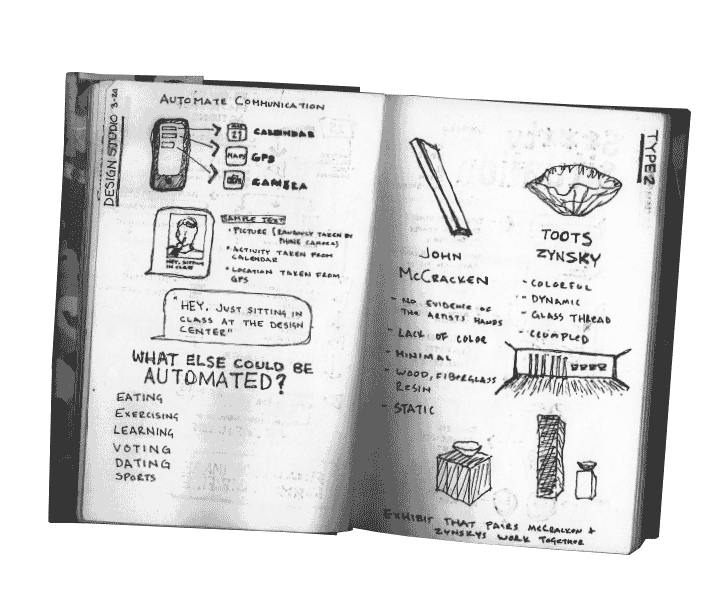 DESIGN STUDIO 3-20
AUTOMATE COMMUNICATION
27 CALENDAR
MAPS GPS
CAMERA
SAMPLE TEXT
• PICTURE (RANDOMLY TAKEN BY
PHONE CAMERA)
• ACTIVITY TAKEN FROM
CALENDAR
• LOCATION TAKEN FROM
GPS
HEY, SITTING
IN CLASS
"HEY, JUST SITTING IN
CLASS AT THE DESIGN
CENTER"
WHAT ELSE COULD BE
AUTOMATED?
EATING
EXERCISING
LEARNING
VOTING
DATING
SPORTS
TYPE 2
JOHN
MCCRACKEN
- NO EVIDENCE OF
THE ARTISTS HANDS
- LACK OF COLOR
- MINIMAL
- WOOD, FIBERGLASS
RESIN
- STATIC
TOOTS
ZYNSKY
- COLORFUL
- DYNAMIC
- GLASS THREAD
- CRUMPLED
EXHIBIT THAT PAIRS MCCRACKEN +
ZYNSKYS WORK TOGETHER